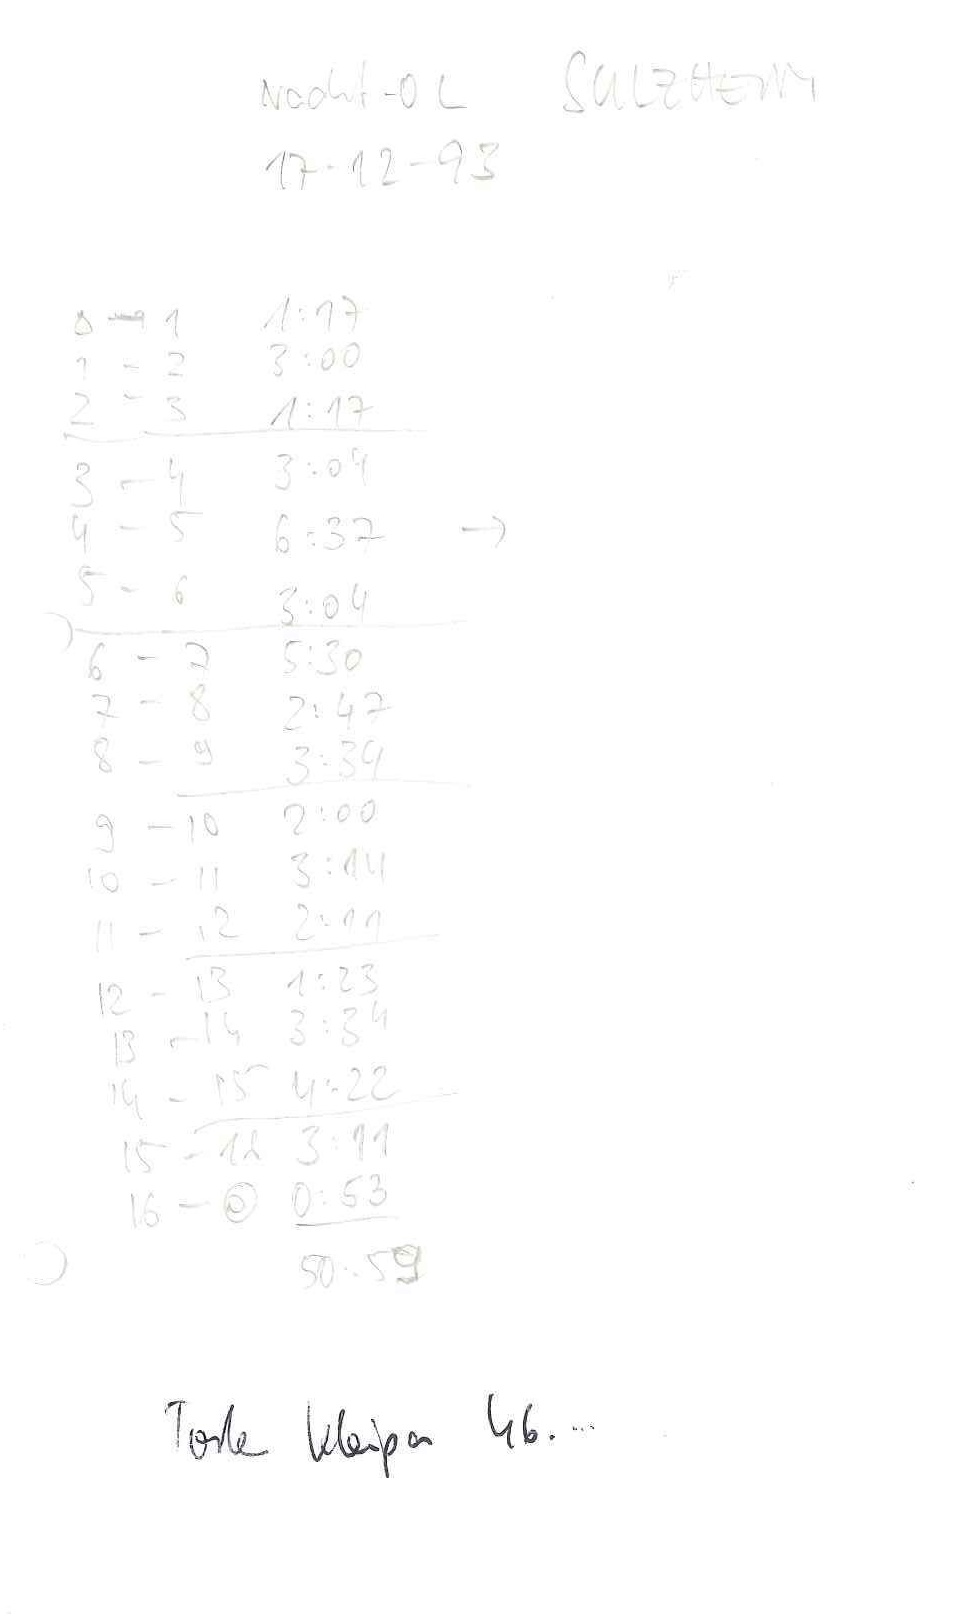 Nacht-OL SULZHEIM
17-12-93
0 - 1 1:17
1 - 2 3:00
2 - 3 1:17
3 - 4 3:04
4 - 5 6:37 →
5 - 6 3:04
6 - 7 5:30
7 - 8 2:47
8 - 9 3:34
9 - 10 2:00
10 - 11 3:14
11 - 12 2:11
12 - 13 1:23
13 - 14 3:34
14 - 15 4:22
15 - 16 3:11
16 - ◎ 0:53
50:59
46. ...